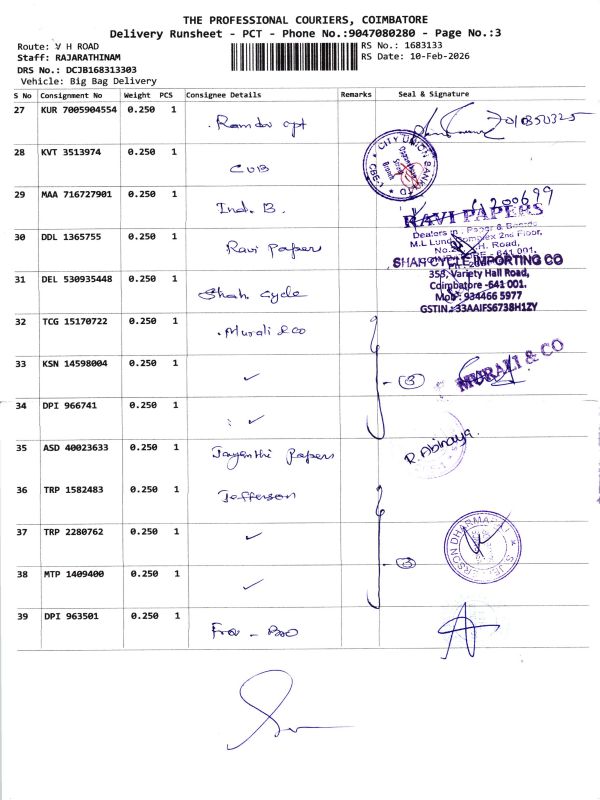 THE PROFESSIONAL COURIERS, COIMBATORE
Delivery Runsheet - PCT - Phone No.:9047080280 - Page No.:3
Route: V H ROAD
Staff: RAJARATHINAM
DRS No.: DCJB168313303
Vehicle: Big Bag Delivery
RS No.: 1683133
RS Date: 10-Feb-2026
S No Consignment No Weight PCS Consignee Details Remarks Seal & Signature
27 KUR 7005904554 0.250 1
28 KVT 3513974 0.250 1 CUB
CITY UNION BANK LTD
CBE-1
29 MAA 716727901 0.250 1 Ind. B.
RAVI PAPERS
Dealers in : Paper & Boards
30 DDL 1365755 0.250 1 Ravi Papers
SHAH CYCLE IMPORTING CO
353, Variety Hall Road,
Coimbatore -641 001.
Mob : 934466 5977
GSTIN :33AAIFS6738H1ZY
31 DEL 530935448 0.250 1 Shah Cycle
32 TCG 15170722 0.250 1 Murali & co
33 KSN 14598004 0.250 1 ✓ 3 MURALI & CO
34 DPI 966741 0.250 1 ✓
35 ASD 40023633 0.250 1 Jayanthi Papers R. Abinaya
36 TRP 1582483 0.250 1 Jefferson
37 TRP 2280762 0.250 1 ✓
38 MTP 1409400 0.250 1 ✓ 3
39 DPI 963501 0.250 1